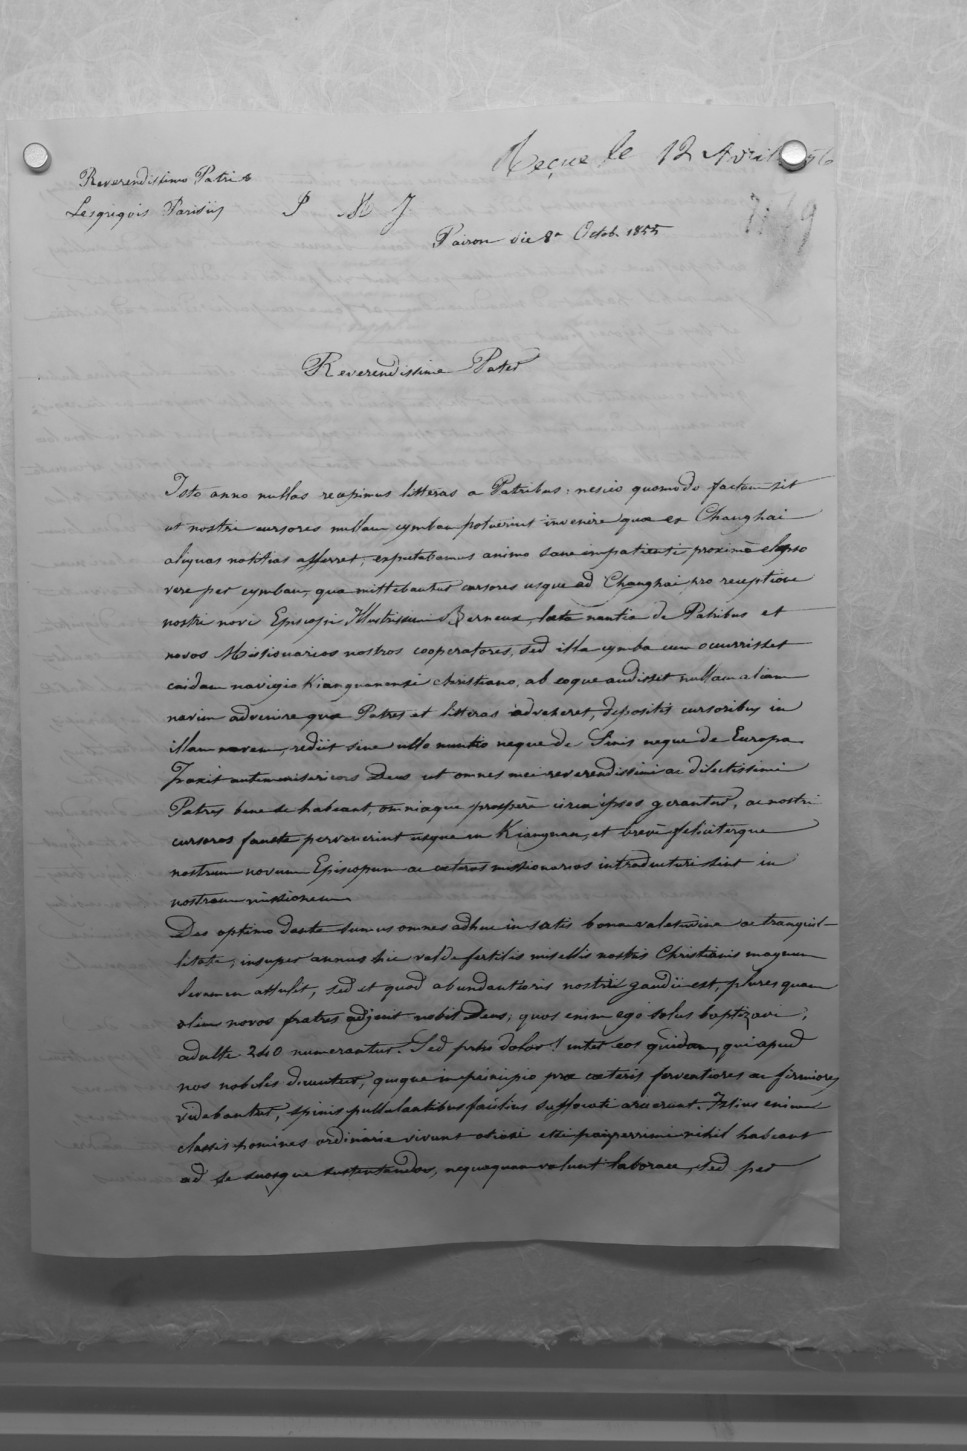 Reçue le 12 Avril 56
Reverendissimo Patri
Legrégeois Parisiis
J M J
Paeron die 8a Octob. 1855
Reverendissime Pater
Isto anno nullas recepimus litteras a Patribus; nescio quomodo factum sit
ut nostri cursores nullam cymbam potuerint invenire quae ex Changhai
aliquas notitias afferret; expectabamus animo sane impatienti proximè elapso
vere per cymbam, qua mittebantur cursores usque ad Changhai pro receptione
nostri novi Episcopi Illustrissimi Berneux, laeta nuntia de Patribus et
novos Missionarios nostros cooperatores, sed illa cymba cum occurrisset
cuidam navigio Kiangnanensi christiano, ab eoque audisset nullam aliam
navim advenire quae Patres et litteras adveheret, depositis cursoribus in
illam navem, rediit sine ullo nuntio neque de Sinis neque de Europa.
Faxit autem misericors Deus ut omnes mei reverendissimi ac dilectissimi
Patres bene se habeant, omniaque prosperè circa ipsos gerantur, ac nostri
cursores fauste pervenerint usque in Kiangnan, et brevi feliciterque
nostrum novum Episcopum ac caeteros missionarios introducturi sint in
nostram missionem.
Deo optimo dante sumus omnes adhuc in satis bona valetudine ac tranquil-
litate; insuper annus hic valde fertilis misellis nostris Christianis magnum
levamen attulit, sed et quod abundantioris nostri gaudii est, plures quam
olim novos fratres adjecit nobis Deus; quos enim ego solus baptizavi,
adulti 240 numerantur. Sed proh dolor! inter eos quidam, qui apud
nos nobiles dicuntur, quique in principio prae caeteris ferventiores ac firmiores
videbantur, spinis pullulantibus facilius suffocati aruerunt. Istius enim
classis homines ordinarie vivunt otiosi etsi pauperrimi nihil habeant
ad se suosque sustentandos, nequaquam volunt laborare, sed per